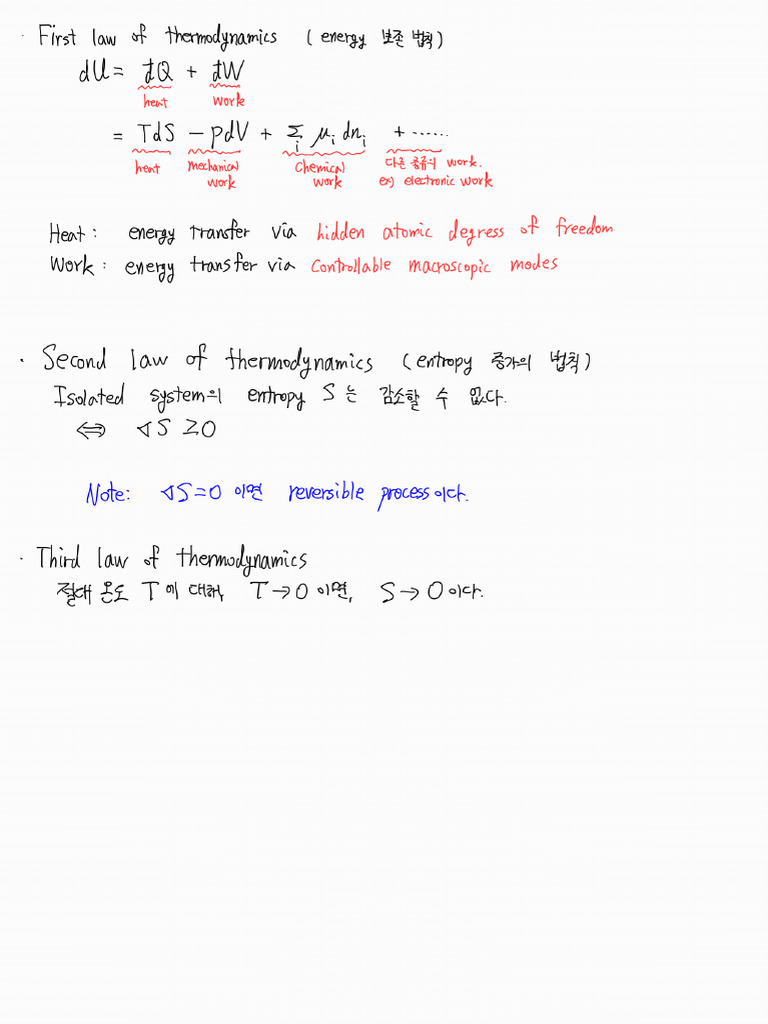 · First law of thermodynamics (energy 보존 법칙)
dU = đQ + đW
heat work
= TdS - pdV + Σ_i μ_i dn_i + ......
heat mechanical work chemical work 다른 종류의 work.
ex) electronic work
Heat: energy transfer via hidden atomic degress of freedom
Work: energy transfer via controllable macroscopic modes
· Second law of thermodynamics (entropy 증가의 법칙)
Isolated system의 entropy S는 감소할 수 없다.
⟺ ΔS ≥ 0
Note: ΔS=0 이면 reversible process이다.
· Third law of thermodynamics
절대 온도 T에 대해, T→0 이면, S→0 이다.